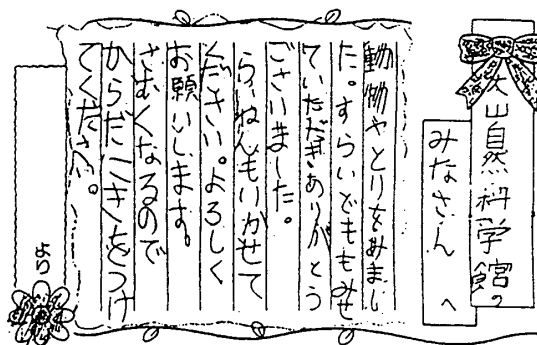 大山自然科学館の
みなさん へ
動物やとりをみまし
た。すらいどももみせ
ていただきありがとう
ございました。
らいねんもいかせて
ください。よろしく
お願いします。
さむくなるので
からだにきをつけ
てください。
より